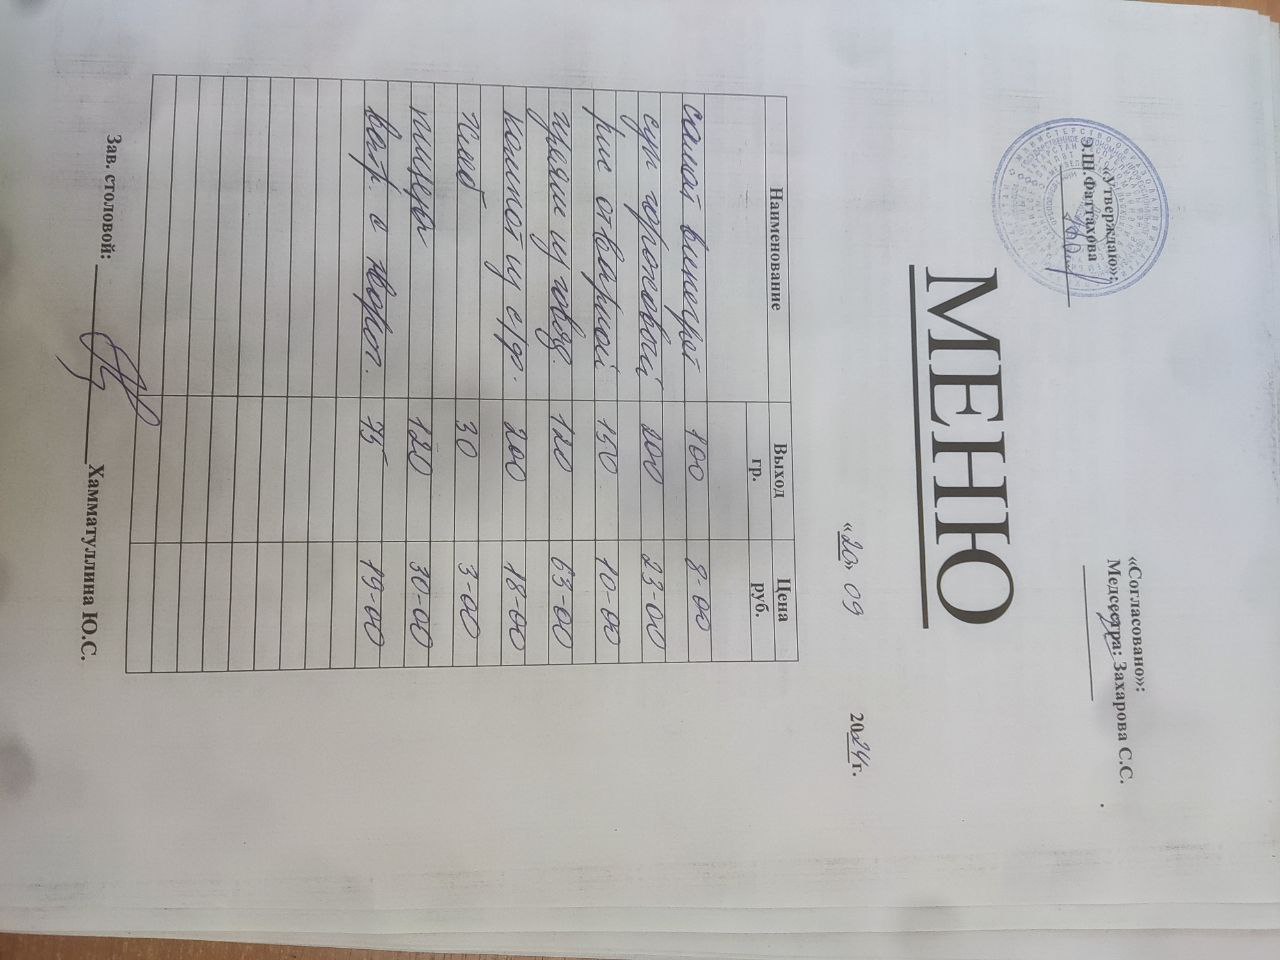 «Утверждаю»:
Э.Ш.Фаттахова
«Согласовано»:
Медсестра: Захарова С.С.
МЕНЮ
«20» 09 2024г.
Наименование Выход гр. Цена руб.
салат винегрет 100 8-00
суп гороховый 200 23-00
рис отварной 150 10-00
гуляш из говяд. 120 63-00
компот из с/ф. 200 18-00
хлеб 30 3-00
пицца 120 30-00
ватр. с творог. 75 19-00
Зав. столовой: Хамматуллина Ю.С.